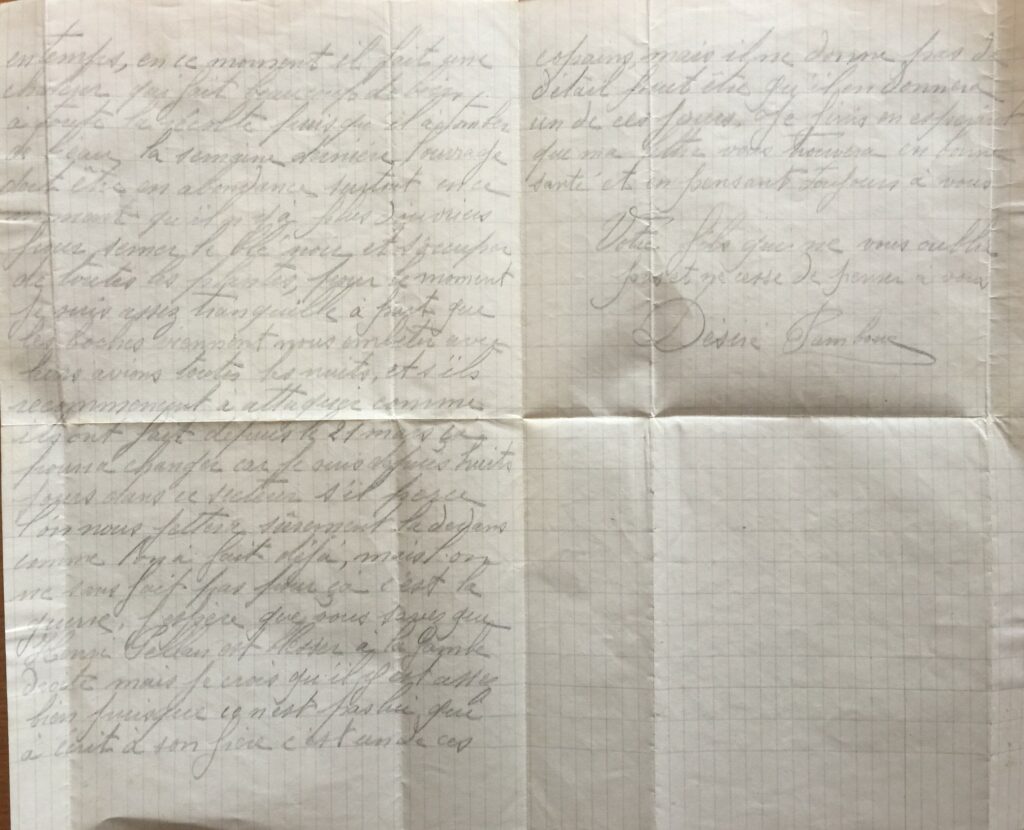 en temps, en ce moment il fait une
chaleur qui fait beaucoup de bien
à toute la récolte puis que il a tomber
de l'eau la semaine dernière l'ouvrage
doit être en abondance surtout en ce
moment qu'il n'y à plus d'ouvriers
pour semer le blé noir et s'occuper
de toutes les plantes, pour le moment
Je suis assez tranquille à part que
les boches viennent nous embêter avec
leurs avions toutes les nuits, et s'ils
recommencent à attaquer comme
ils ont fait depuis le 21 mars ça
pourra changer car je suis depuis huits
jours dans ce secteur s'il perce
l'on nous jettera sûrement la dedans
comme l'on à fait déjà, mais l'on
ne s'en fait pas pour ça c'est la
guerre. J'espère que vous savez que
Henri est blesser à la Jambe
droite mais je crois qu'il est assez
bien puisque ce n'est pas lui qui
à écrit à son frère c'est un de ces
copains mais il ne donne pas de
détail peut être qu'il en donnera
un de ces jours. Je finis en espérant
que ma lettre vous trouvera en bonne
santé et en pensant toujours à vous
Votre fils qui ne vous oublie
pas et ne cesse de penser à vous
Désiré